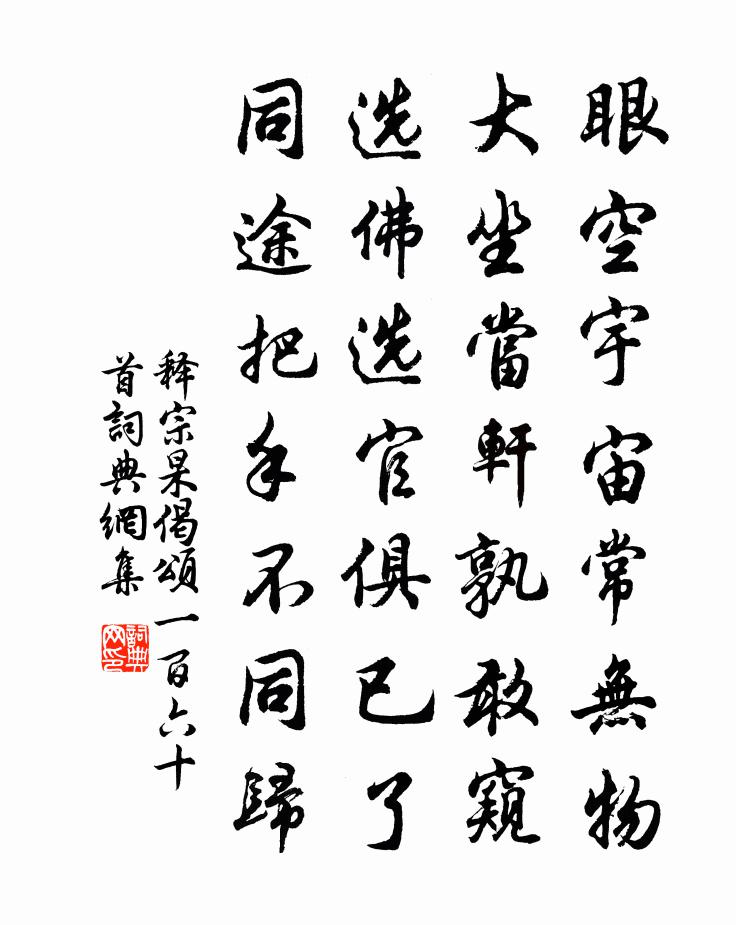 眼空宇宙常無物
大坐當軒孰敢窺
选佛选官俱已了
同途把手不同歸
释宗杲偈頌一百六十
首詞典網集
詞典網印